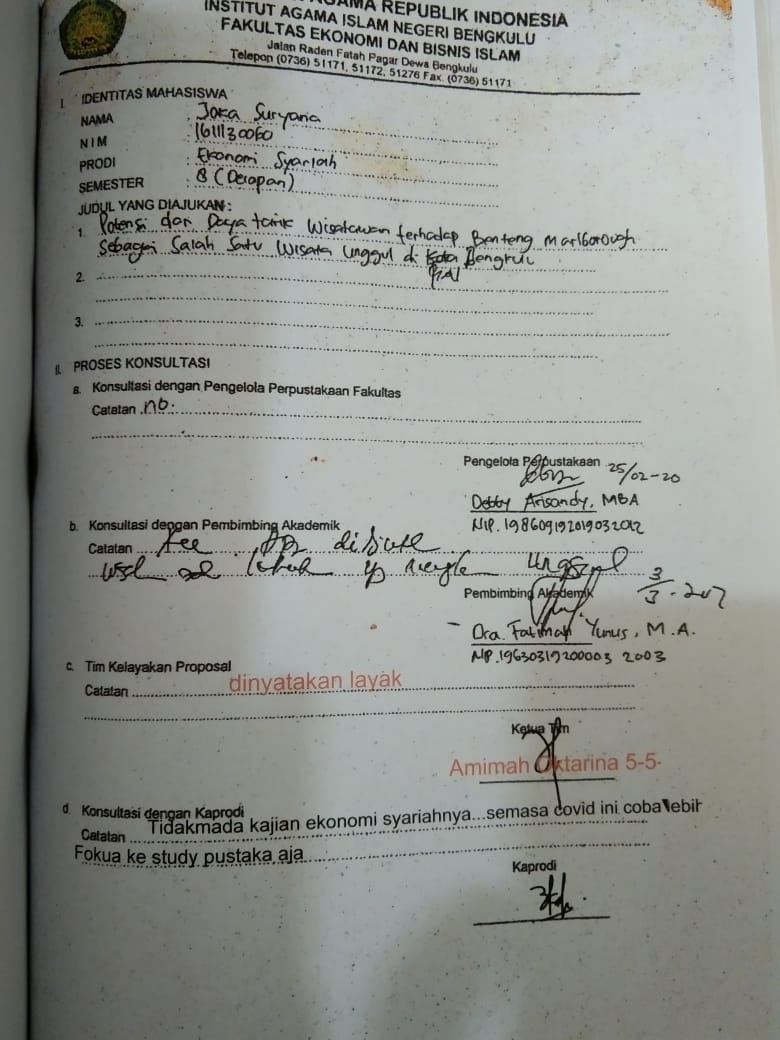 AMA REPUBLIK INDONESIA
INSTITUT AGAMA ISLAM NEGERI BENGKULU
FAKULTAS EKONOMI DAN BISNIS ISLAM
Jalan Raden Fatah Pagar Dewa Bengkulu
Telepon (0736) 51171, 51172, 51276 Fax. (0736) 51171
I. IDENTITAS MAHASISWA
NAMA : Joka Suryana
NIM : 1611130060
PRODI : Ekonomi Syariah
SEMESTER : 8 (Delapan)
JUDUL YANG DIAJUKAN :
1. Potensi dan Daya tarik Wisatawan terhadap Benteng Marlborough
Sebagai Salah Satu Wisata Unggul di Kota Bengkulu
2.
3.
II. PROSES KONSULTASI
a. Konsultasi dengan Pengelola Perpustakaan Fakultas
Catatan no.
Pengelola Perpustakaan 25/02-20
Debby Arisandy, MBA
NIP. 198609192019032012
b. Konsultasi dengan Pembimbing Akademik
Catatan
Pembimbing Akademik
Dra. Fatimah Yunus, M.A.
NIP. 19630319200003 2003
c. Tim Kelayakan Proposal
Catatan dinyatakan layak
Ketua Tim
Amimah Oktarina 5-5-
d. Konsultasi dengan Kaprodi
Catatan Tidakmada kajian ekonomi syariahnya...semasa covid ini coba lebih
Fokua ke study pustaka aja
Kaprodi